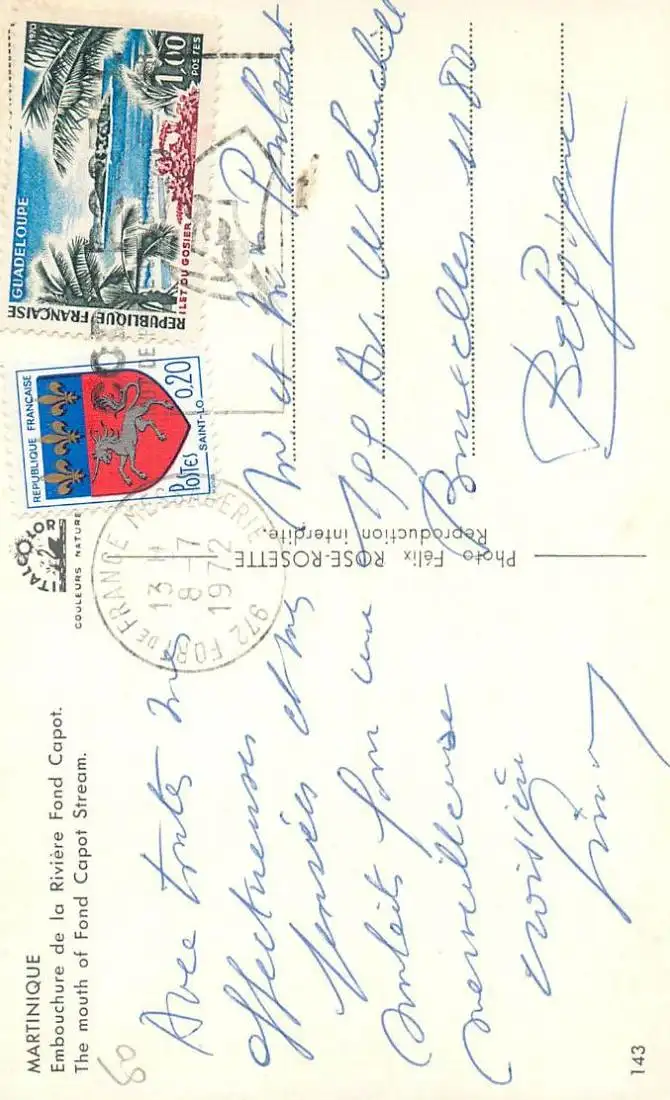 MARTINIQUE
Embouchure de la Rivière Fond Capot.
The mouth of Fond Capot Stream.
ITALCOLOR
COULEURS NATURE
Avec toutes mes
affectueuses
pensées et mes
souhaits pour une
merveilleuse
croisière
143
80
Photo Félix ROSE-ROSETTE
Reproduction interdite.
REPUBLIQUE FRANÇAISE
POSTES
0,20
SAINT-LO
GUADELOUPE
REPUBLIQUE FRANÇAISE
ILET DU GOSIER
1,00
POSTES
1970
972 FORT DE FRANCE MESSAGERIE
13 H
8 - 7
1972
M et Mme
199 Av. W Churchill
Bruxelles 1180
Belgique